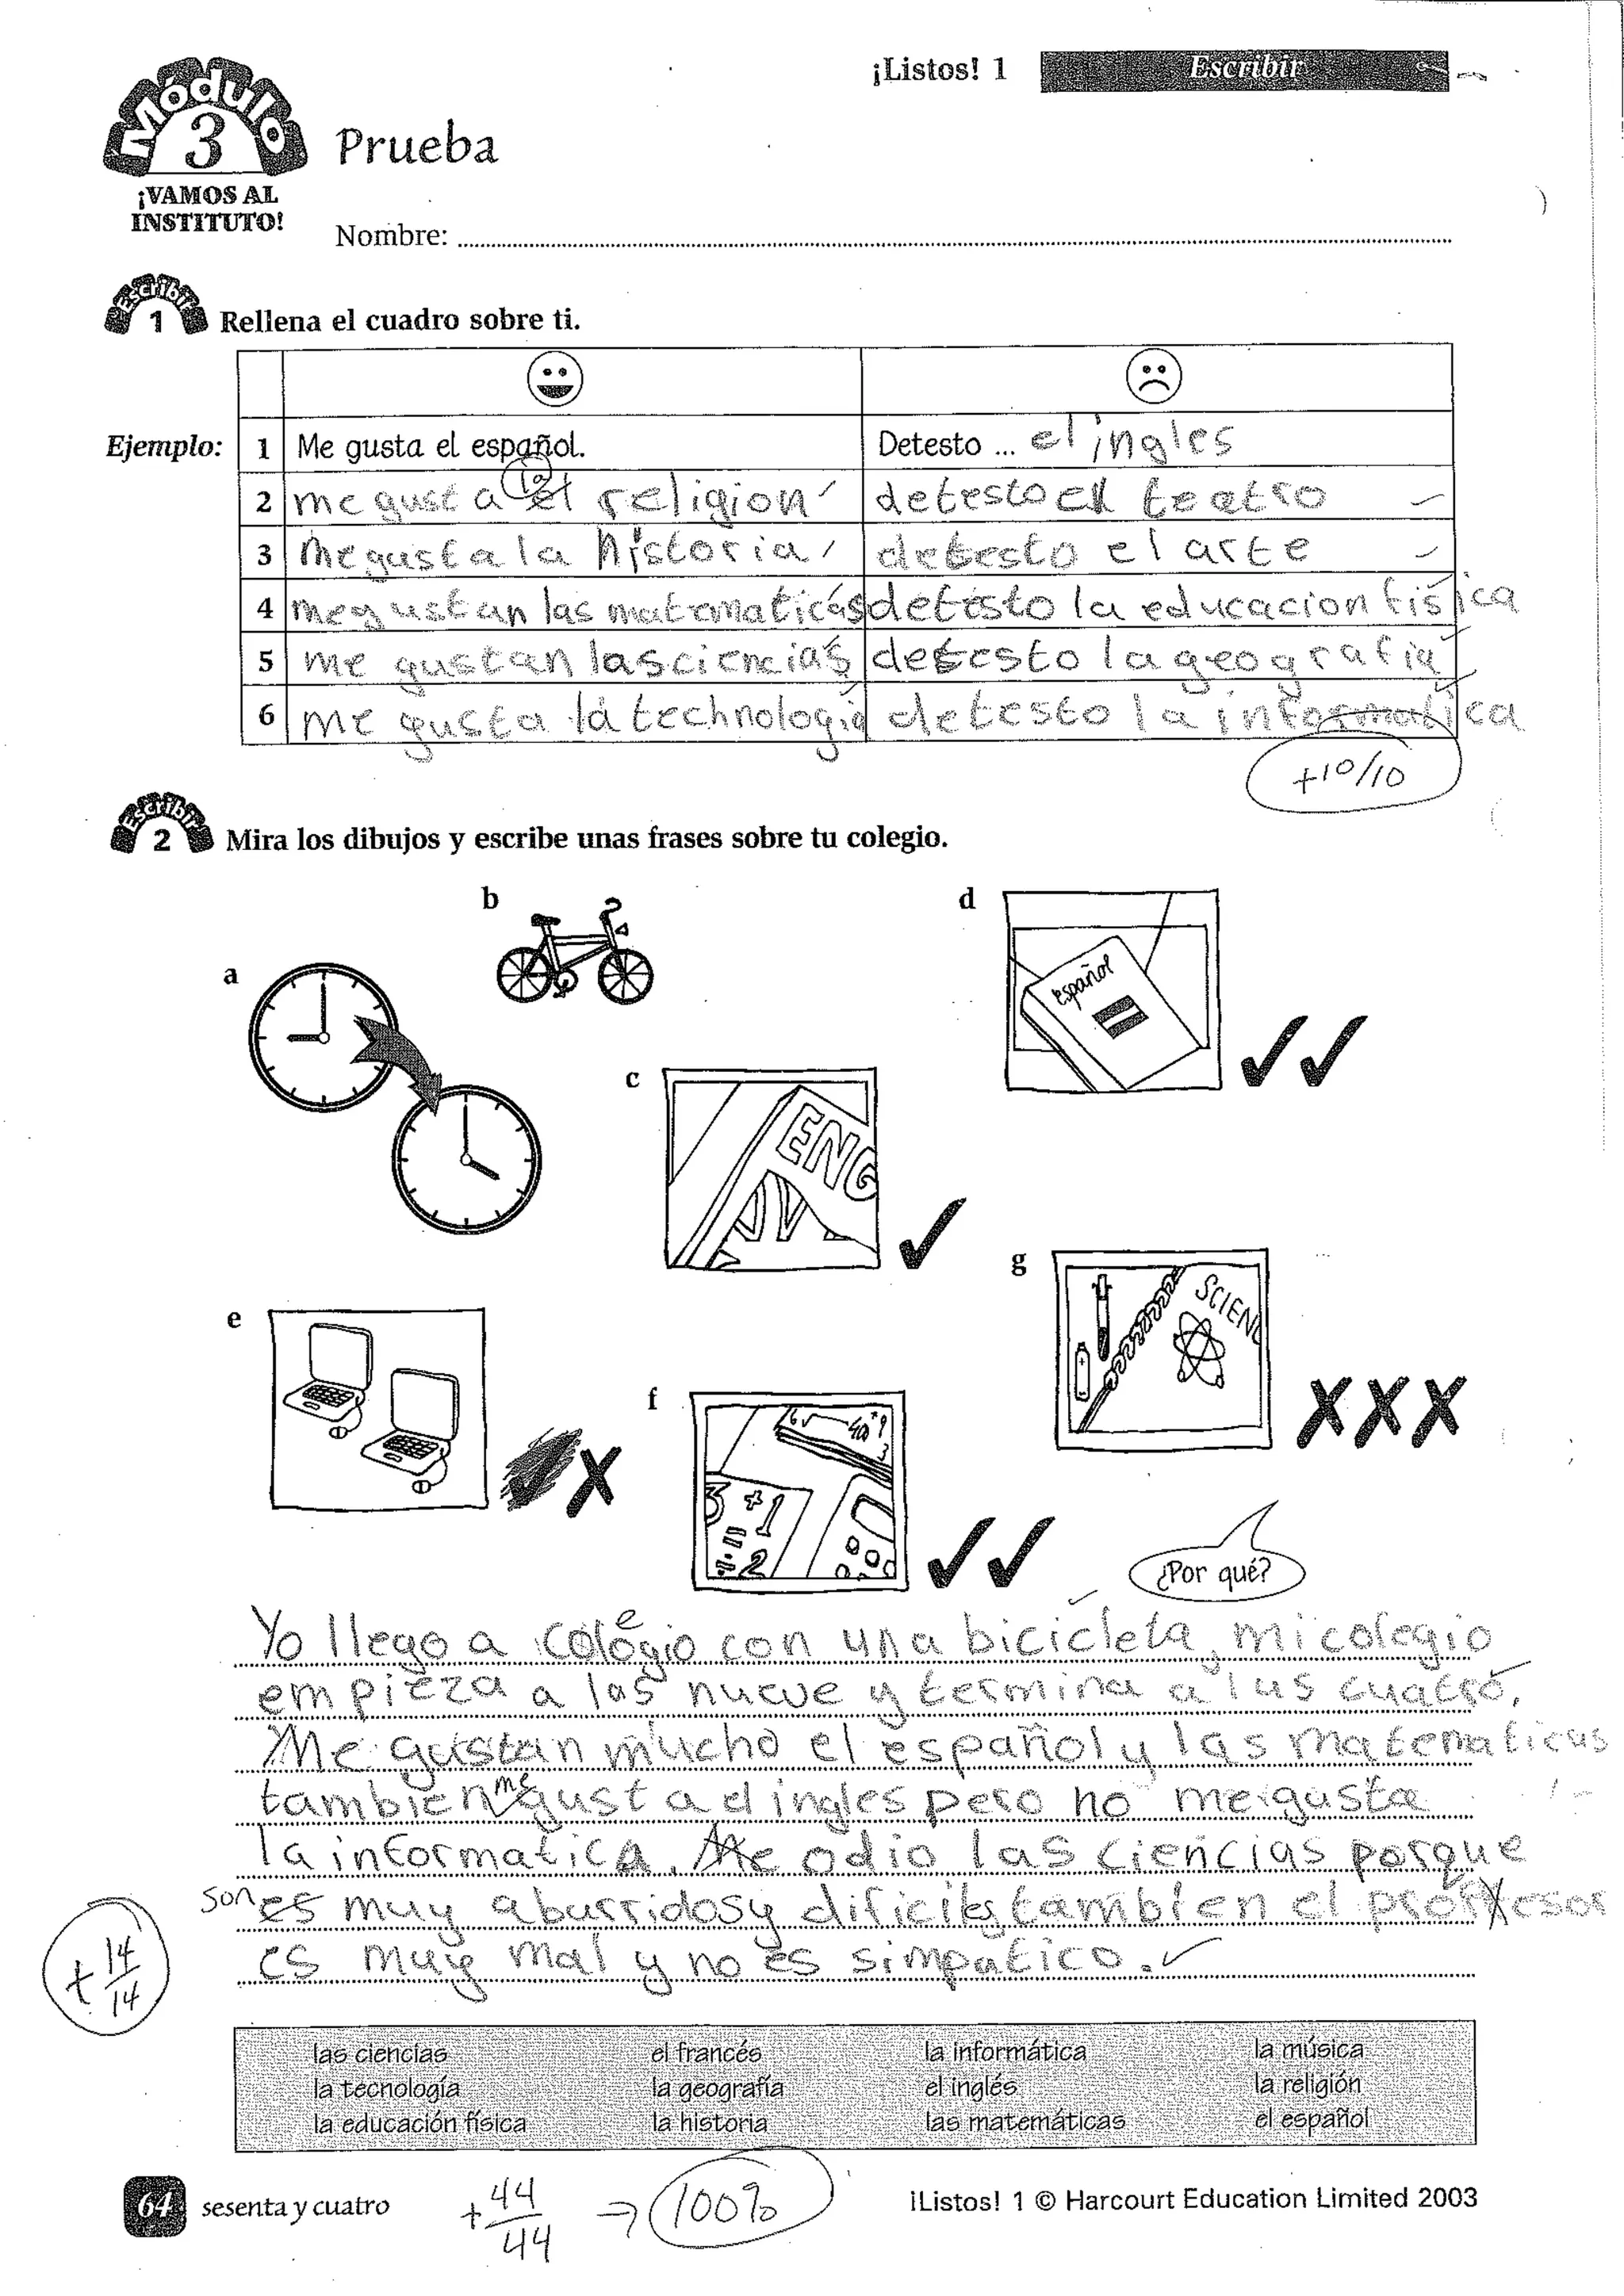 ¡Listos! 1 Escribir
Módulo 3
Prueba
¡VAMOS AL
INSTITUTO!
Nombre:
Escribir 1 Rellena el cuadro sobre ti.
Ejemplo: 1 Me gusta el español. Detesto ... el ingles
la
2 me gusta el religion detesto el teatro
3 me gusta la historia detesto el arte
4 me gustan las matematicas detesto la educacion fisica
5 me gustan las ciencias detesto la geografia
6 me gusta la technologia detesto la informatica
+10/10
Escribir 2 Mira los dibujos y escribe unas frases sobre tu colegio.
a
b
c
ENG
d
español
e
f
g
SCIEN
¿Por qué?
e
Yo llego a cologio con una bicicleta, mi colegio
empieza a las nueve y termina a las cuatro.
Me gustan mucho el español y las matematicas
tambien me gusta el ingles pero no me gusta
la informatica. Me odio las ciencias porque
son es muy aburridos y dificiles tambien el professor
es muy mal y no es simpatico.
+14/14
las ciencias el francés la informática la música
la tecnología la geografía el inglés la religión
la educación física la historia las matemáticas el español
64 sesenta y cuatro
+44/44 → 100%
¡Listos! 1 © Harcourt Education Limited 2003